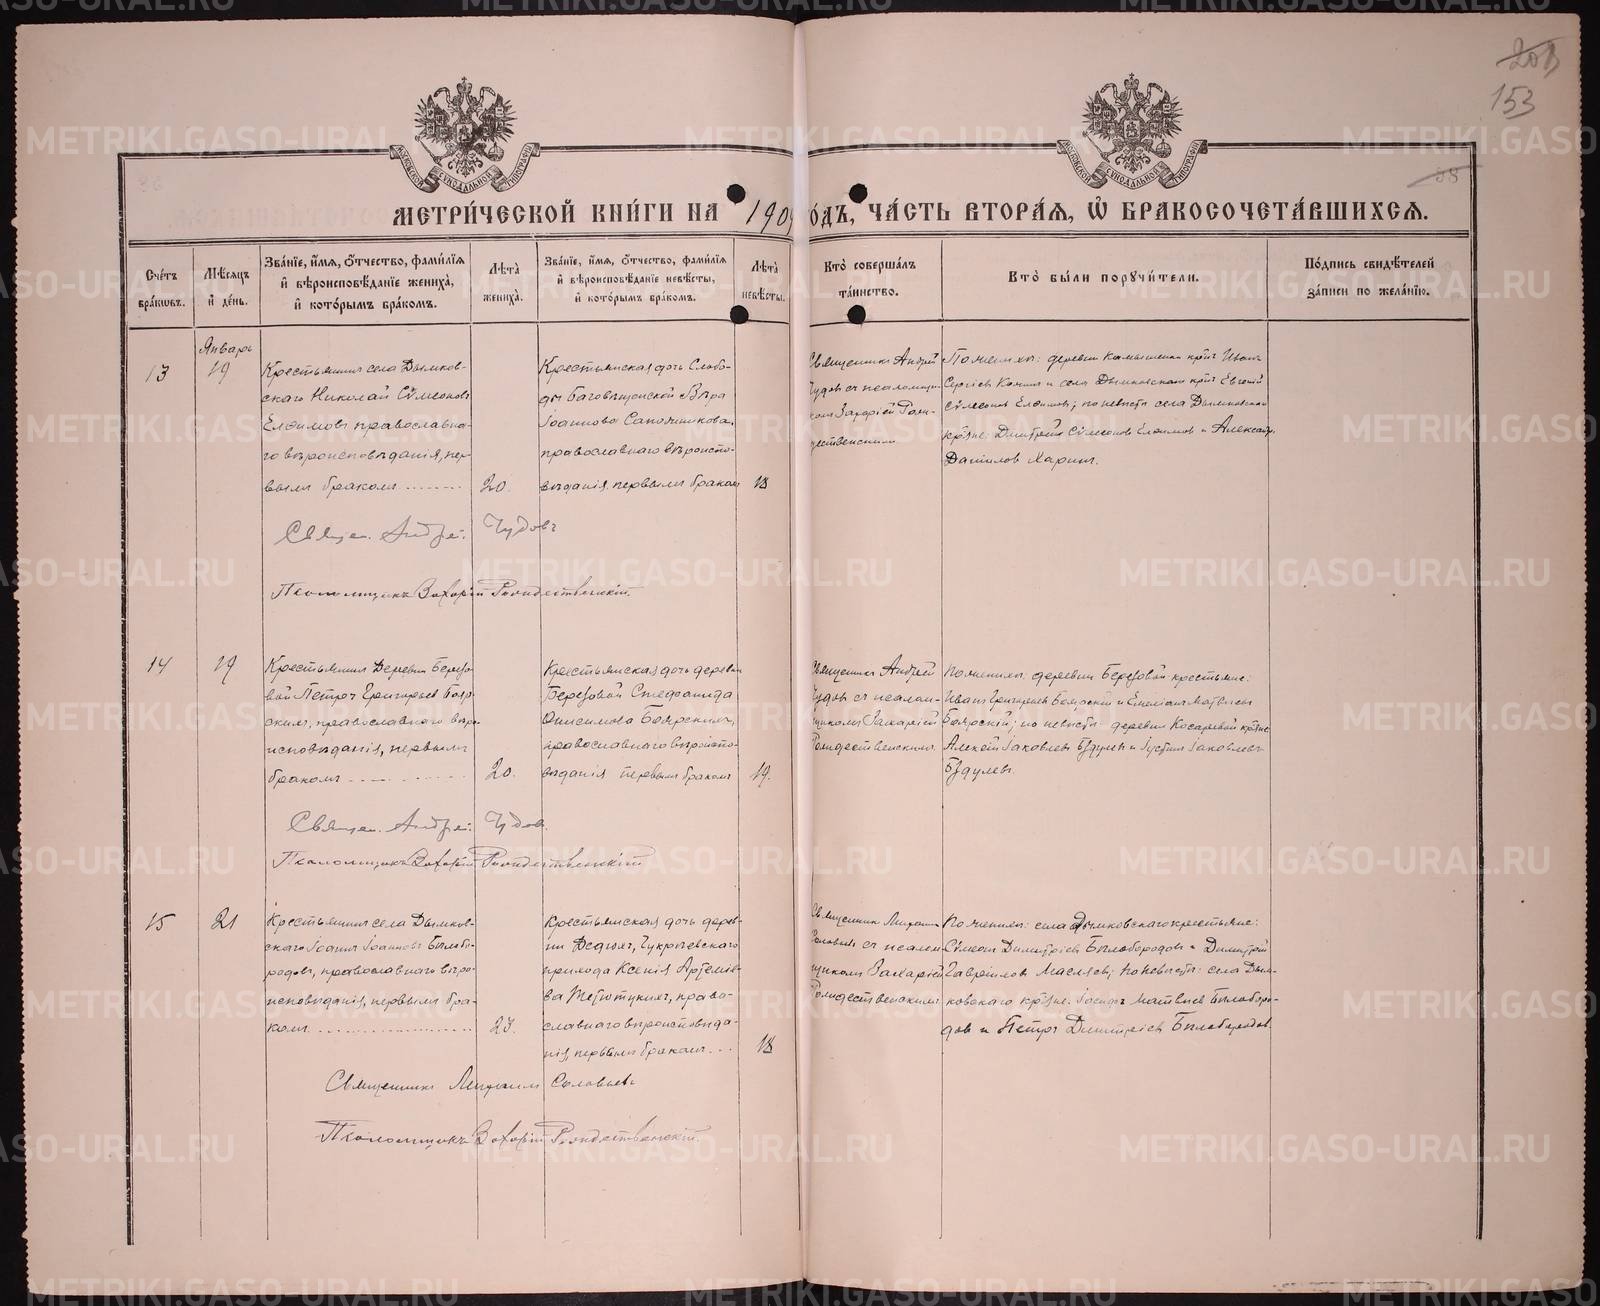 201
153
38
МОСКОВСКОЙ СѴНОДАЛЬНОЙ ТИПОГРАФІИ
МОСКОВСКОЙ СѴНОДАЛЬНОЙ ТИПОГРАФІИ
МЕТРИ́ЧЕСКОЙ КНИ́ГИ НА 190 ГОДЪ, ЧА́СТЬ ВТОРА́Я, Ѡ БРАКОСОЧЕТА́ВШИХСЯ.
Сче́тъ бра́кѡвъ.
Мѣ́сяцъ и́ де́нь.
Зва́нїе, и́мя, о́тчество, фами́лїя и́ вѣроисповѣ́данїе жениха̀, и́ кото́рымъ бра́комъ.
Лѣ́та жениха̀.
Зва́нїе, и́мя, о́тчество, фами́лїя и́ вѣроисповѣ́данїе невѣ́сты, и́ кото́рымъ бра́комъ.
Лѣ́та невѣ́сты.
Кто̀ соверша́лъ та́инство.
Кто̀ бы́ли порꙋчи́тели.
По́дпись свидѣ́телей за́писи по жела́нїю.
Январь
13
19
Крестьянинъ села Дымков-
скаго Николай Сѵмеоновъ
Елфимовъ православна-
го вѣроисповѣданія, пер-
вымъ бракомъ
20.
Крестьянская дочь Слобо-
ды Баговѣщенской Вѣра
Іоаннова Сапожникова,
православнаго вѣроиспо-
вѣданія, первымъ бракомъ
18
Священникъ Андрей
Чудовъ съ псаломщи-
комъ Захаріей Рож-
дественскимъ
По женихѣ: деревни Камышенки кр-нъ Иванъ
Сергіевъ и села Дымковскаго кр-нъ Евгеній
Сѵмеоновъ Елфимовъ; по невѣстѣ села Дымковскаго
кр-не: Димитрій Сѵмеоновъ Елфимовъ и Александръ
Даниловъ Харинъ.
Священ. Андрей Чудовъ
Псаломщикъ Захарій Рождественскій.
14
19
Крестьянинъ Деревни Березо-
вой Петръ Григорьевъ Бояр-
скихъ, православнаго вѣро-
исповѣданія, первымъ
бракомъ
20.
Крестьянская дочь деревни
Березовой Стефанида
Онисимова Боярскихъ,
православнаго вѣроиспо-
вѣданія первымъ бракомъ
19.
Священникъ Андрей
Чудовъ съ псалом-
щикомъ Захаріей
Рождественскимъ.
По женихѣ: деревни Березовой крестьяне:
Иванъ Григорьевъ Боярскій и Емеліанъ Матвѣевъ
Боярскій; по невѣстѣ деревни Косаревой кр-не
Алексій Іаковлевъ Бздулевъ и Іустинъ Іаковлевъ
Бздулевъ.
Священ. Андрей Чудовъ
Псаломщикъ Захарій Рождественскій
15
21
Крестьянинъ села Дымков-
скаго Іоаннъ Іоанновъ Бѣлобо-
родовъ, православнаго вѣро-
исповѣданія, первымъ бра-
комъ
23.
Крестьянская дочь дерев-
ни
прихода Ксенія Артеміе-
ва Тетюцкихъ, право-
славнаго вѣроисповѣда-
нія, первымъ бракомъ
18
Священникъ Михаилъ
Соловьевъ съ псалом-
щикомъ Захаріей
Рождественскимъ
По женихѣ: села Дымковскаго крестьяне:
Сѵмеонъ Димитріевъ Бѣлобородовъ и Димитрій
Гавріиловъ Масляевъ; по невѣстѣ: села Дым-
ковскаго кр-не: Іосифъ Матвѣевъ Бѣлоборо-
довъ и Петръ Димитріевъ Бѣлобородовъ.
Священникъ Михаилъ Соловьевъ
Псаломщикъ Захарій Рождественскій.
METRIKI.GASO-URAL.RU